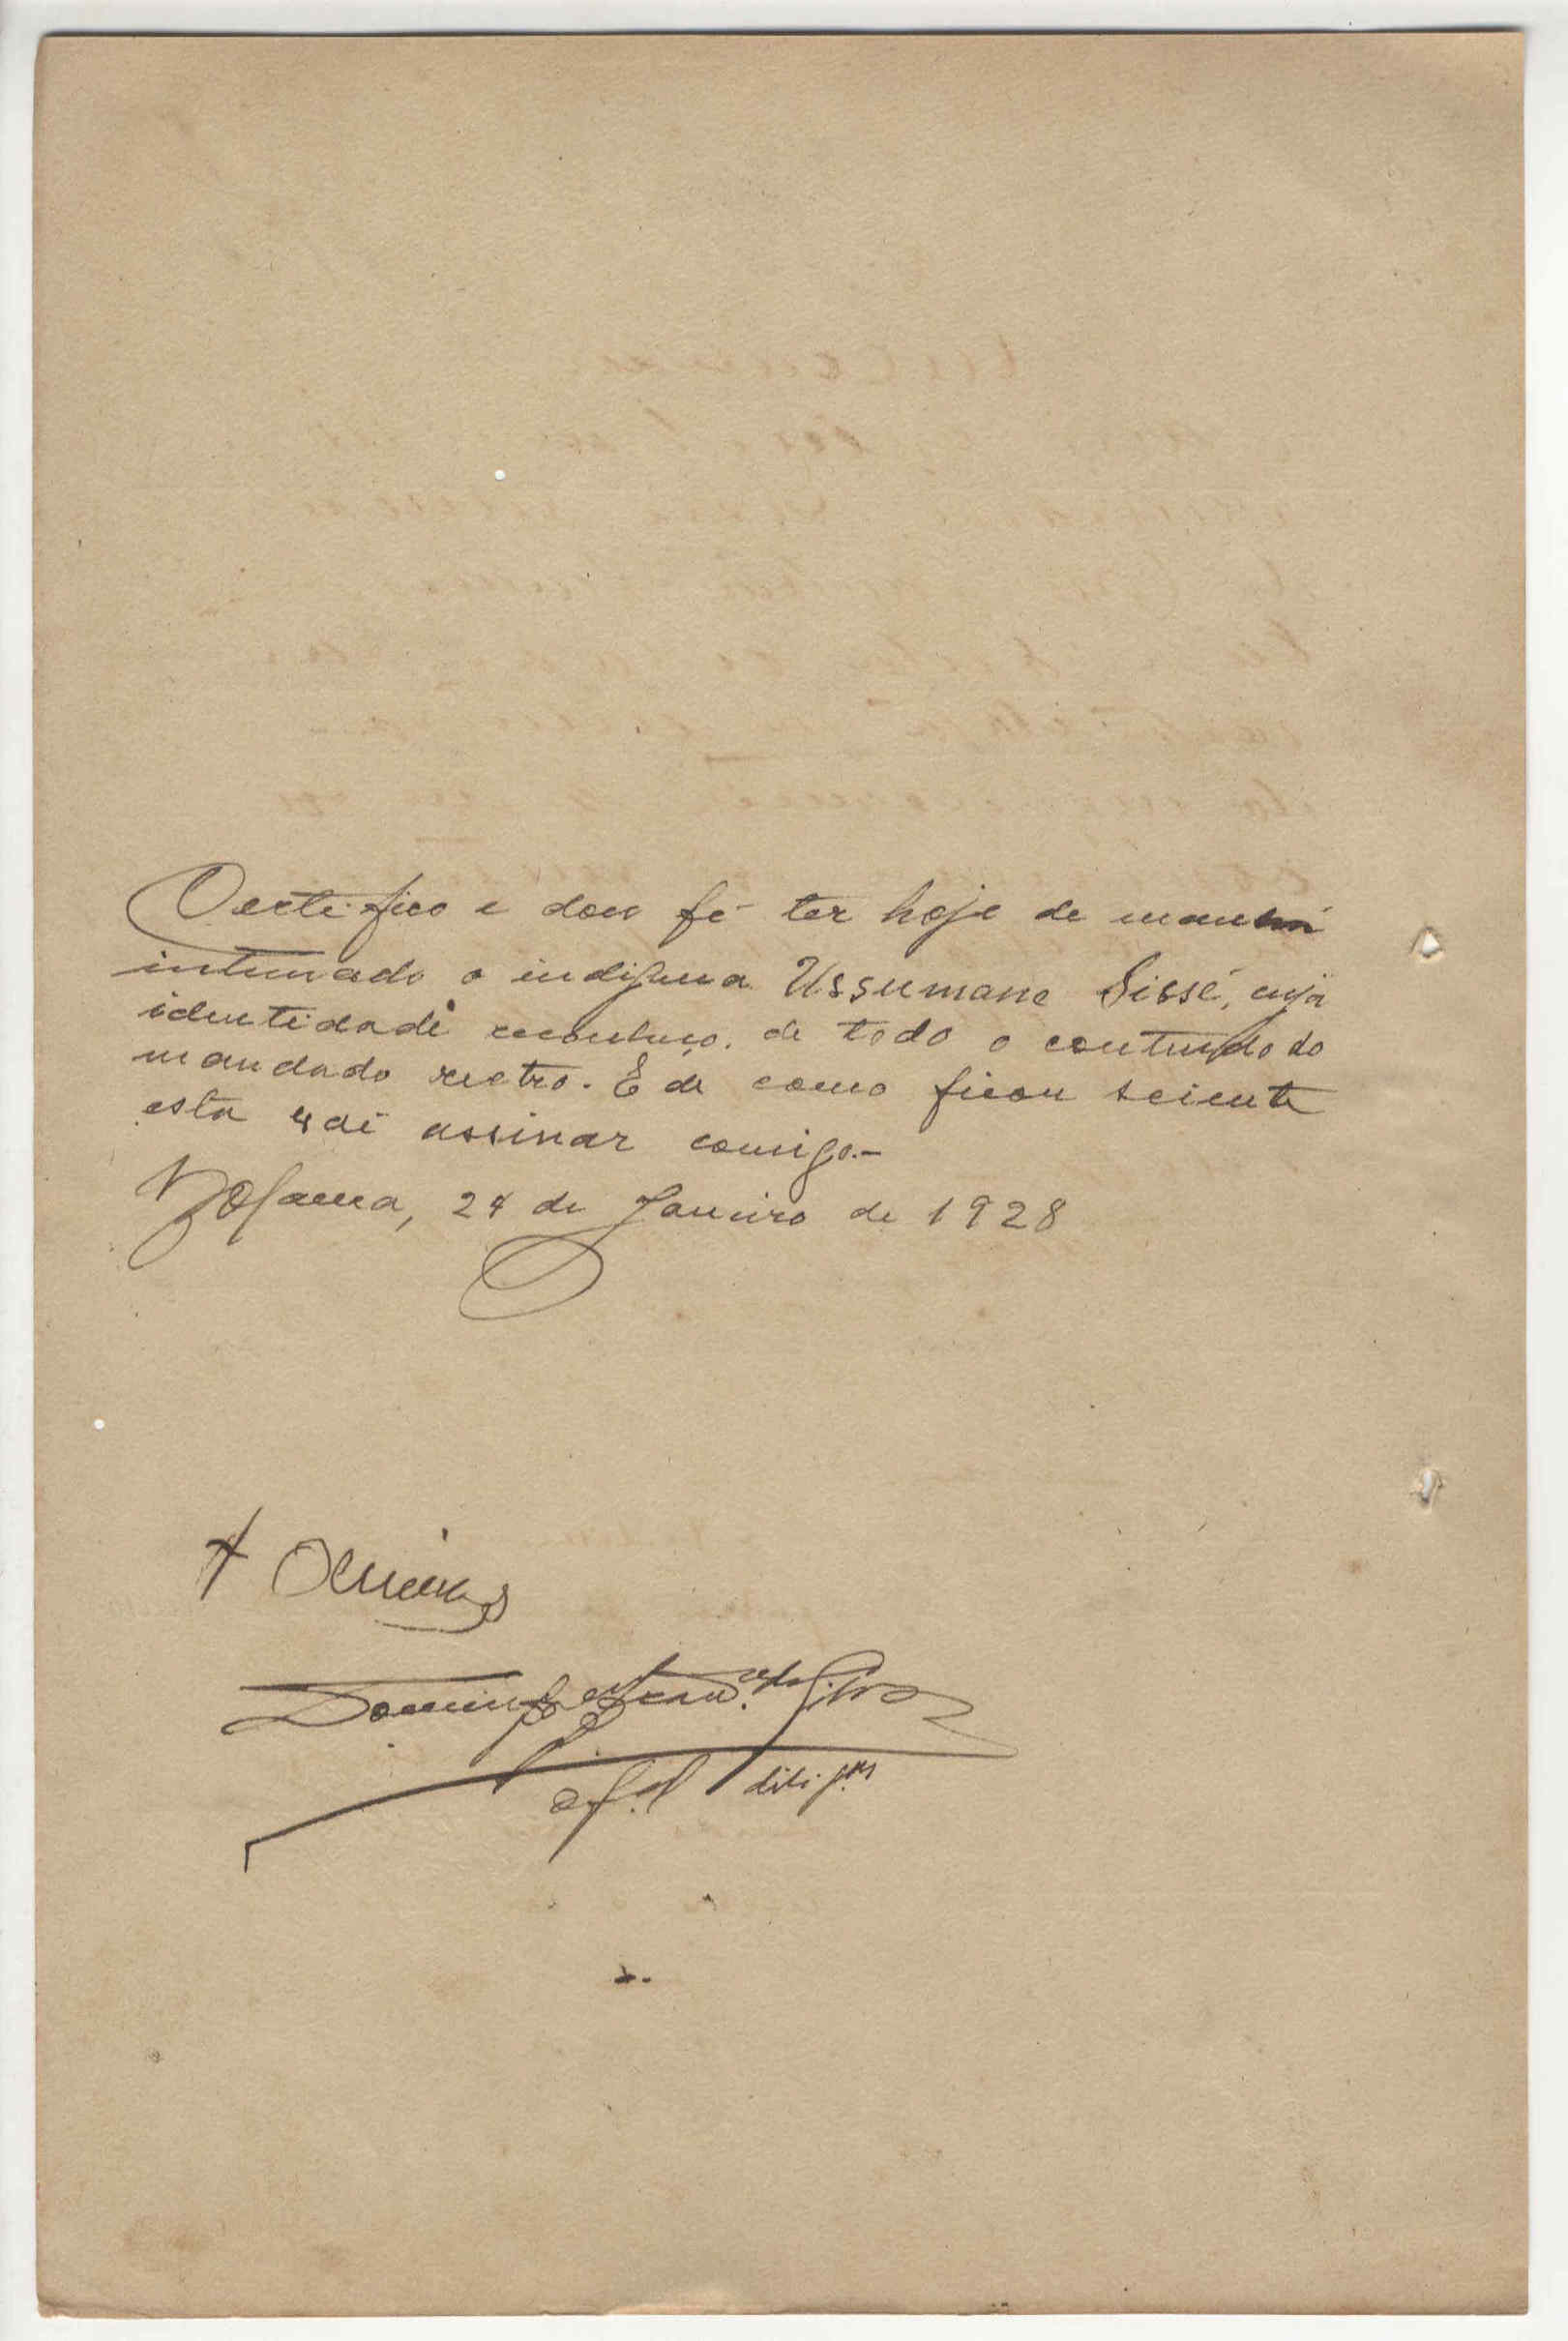 Certifico e dou fé ter hoje de manhã
intimado o indigena Ussumane Sissé, cuja
identidade reconheço, de todo o contendo do
mandado retro. E de como ficou sciente
esta vai assinar comigo.-
Bolama, 24 de Janeiro de 1928
Domingos
of.al dilig.as